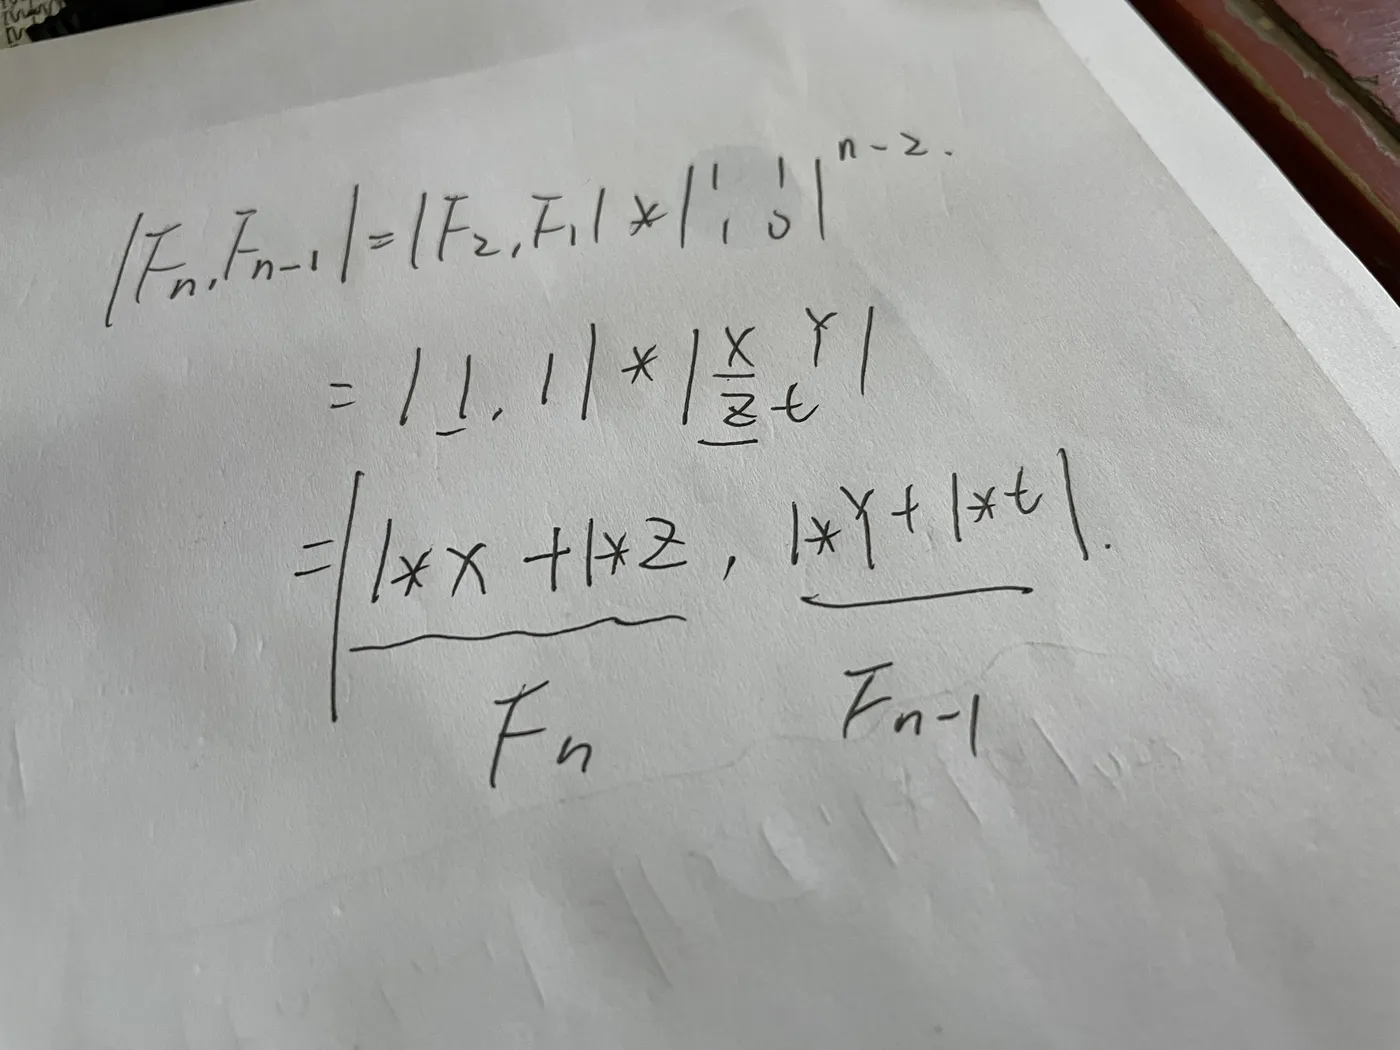 |Fn, Fn-1| = |F2, F1| * |1 1 1 0|^n-2.
= |1, 1| * |X Y Z t|
= |1*X + 1*Z, 1*Y + 1*t|.
Fn Fn-1